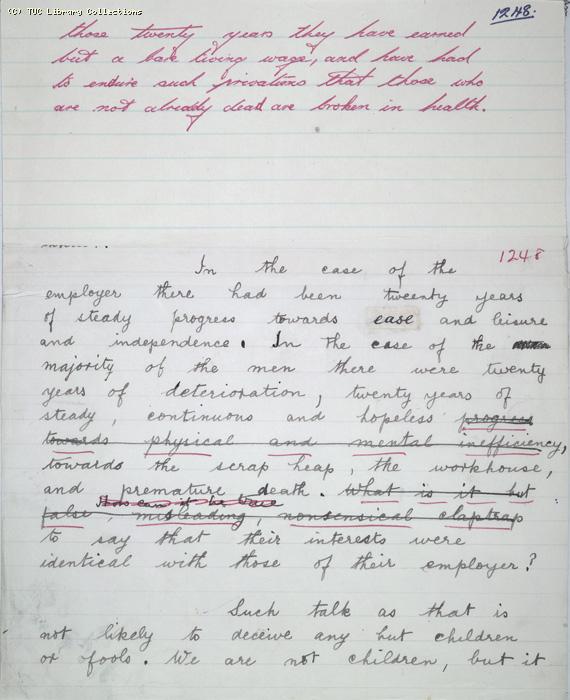 (C) TUC Library Collections
1248.
those twenty years they have earned
but a bare living wage, and have had
to endure such privations that those who
are not already dead are broken in health.
1248
In the case of the
employer there had been tweenty years
of steady progress towards ease and leisure
and independence. In the case of the
majority of the men there were twenty
years of deterioration, twenty years of
steady, continuous and hopeless progress
towards physical and mental inefficiency,
towards the scrap heap, the workhouse,
and premature death. What is it but
How can it be true
false, misleading, nonsensical claptrap
to say that their interests were
identical with those of their employer?
Such talk as that is
not likely to deceive any but children
or fools. We are not children, but it